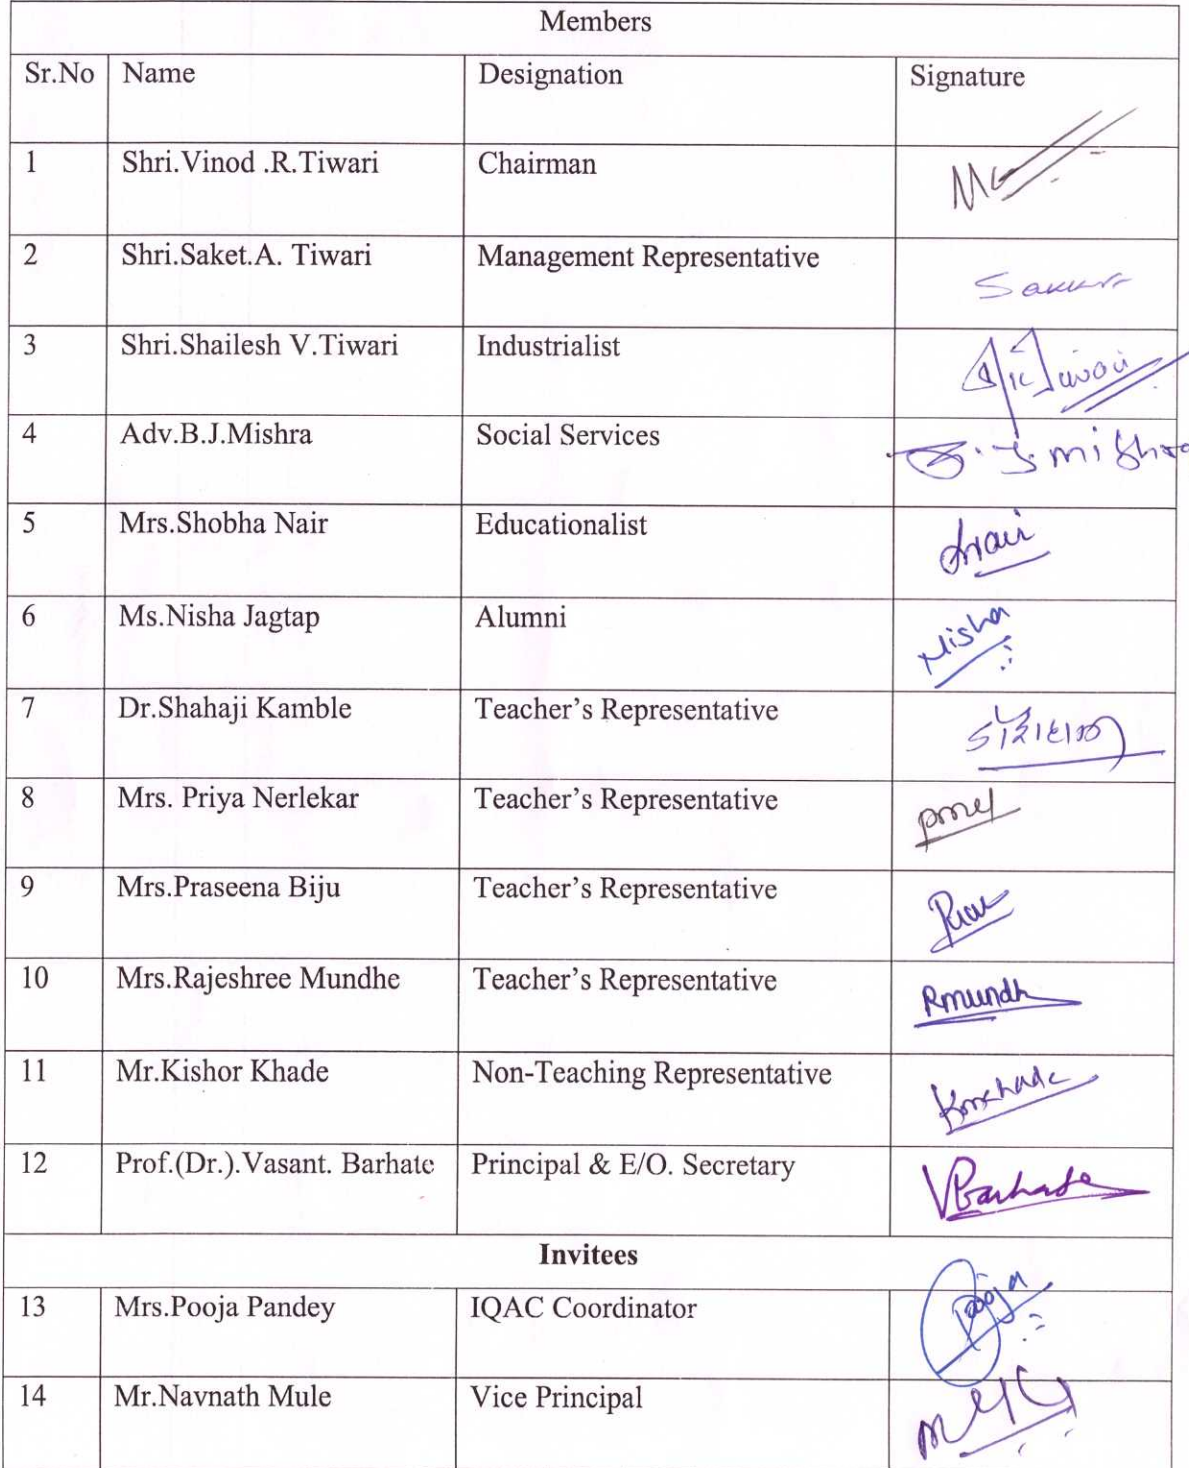 Members
Sr.No Name Designation Signature
1 Shri.Vinod .R.Tiwari Chairman
2 Shri.Saket.A. Tiwari Management Representative
3 Shri.Shailesh V.Tiwari Industrialist
4 Adv.B.J.Mishra Social Services B.J.mishra
5 Mrs.Shobha Nair Educationalist
6 Ms.Nisha Jagtap Alumni Nisha
7 Dr.Shahaji Kamble Teacher’s Representative
8 Mrs. Priya Nerlekar Teacher’s Representative
9 Mrs.Praseena Biju Teacher’s Representative
10 Mrs.Rajeshree Mundhe Teacher’s Representative Rmundh
11 Mr.Kishor Khade Non-Teaching Representative
12 Prof.(Dr.).Vasant. Barhate Principal & E/O. Secretary VBarhate
Invitees
13 Mrs.Pooja Pandey IQAC Coordinator Pooja
14 Mr.Navnath Mule Vice Principal